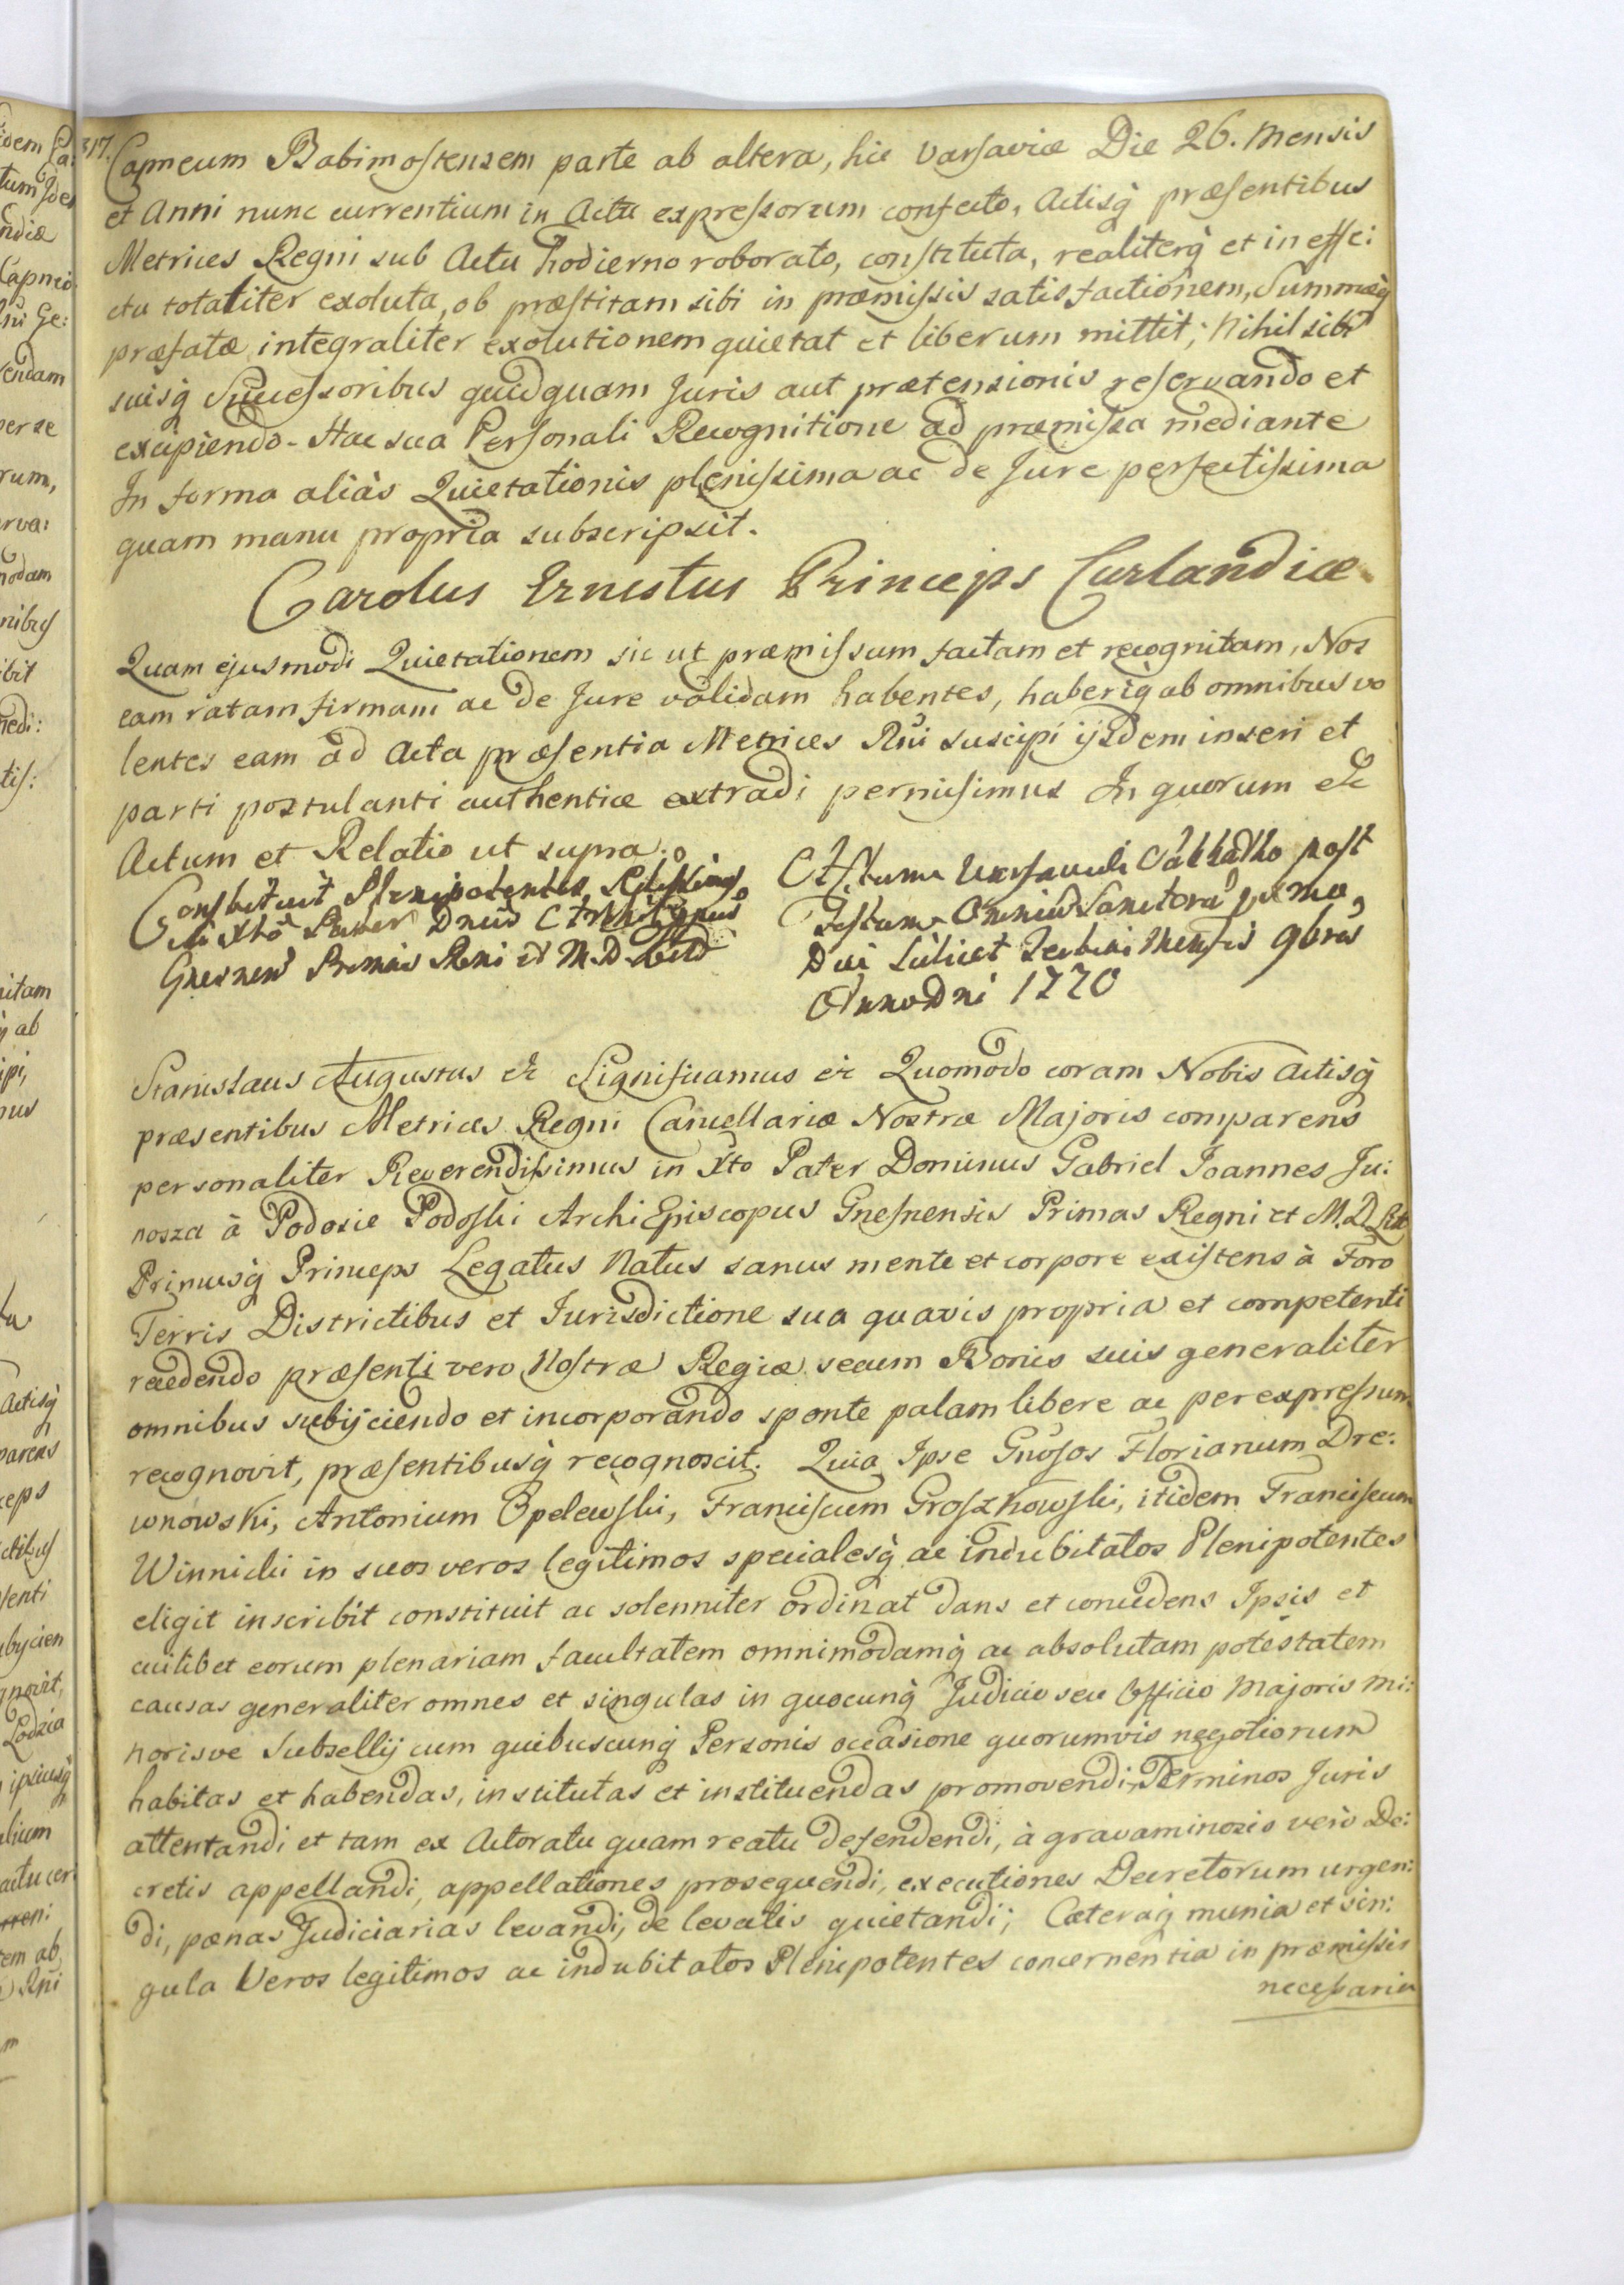 317.
Capneum Babimostensem parte ab altera, hic Varsaviæ Die 26. Mensis
et Anni nunc currentium in Actu expressorum confecto, Actisq̀ præsentibus
Metrices Regni sub Actu hodierno roborato, constituta, realiterq̀ et in effe:
ctu totaliter exoluta, ob præstitam sibi in præmissis satisfactionem, Summæq̀
præfatæ integraliter exolutionem quietat et liberum mittit; Nihil sibi
suisq̀ Successoribus quidquam Juris aut prætensionis reservando et
excipiendo - Hac sua Personali Recognitione ad præmissa mediante
In forma aliàs Quietationis plenissima ac de Jure perfectissima
quam manu propria subscripsit.
Carolus Ernestus Princeps Curlandiæ
Quam ejusmodi Quietationem sic ut præmissum factam et recognitam, Nos
eam ratam firmam ac de Jure validam habentes, haberiq̀ ab omnibus vo
lentes eam ad Acta præsentia Metrices Rni suscipi ijsdem inseri et
parti postulanti authentice extradi permisimus In quorum etc
Actum et Relatio ut supra.
Constituit Plenipotentes
in Xto Pater Dnus
Gnesnen Primas Rni et M. D. Litt
Actum Varsaviæ Sabbatho post
Festum Omnium Sanctorum primo,
Die scilicet Tertia Mensis 9bris
Anno Dni 1770
Stanislaus Augustus etc Significamus etc Quomodo coram Nobis Actisq̀
præsentibus Metrices Regni Cancellariæ Nostræ Majoris comparens
personaliter Reverendissimus in Xto Pater Dominus Gabriel Joannes Ju:
nosza à Podosie Podoski ArchiEpiscopus Gnesnensis Primas Regni et M. D. Litt
Primusq̀ Princeps Legatus Natus sanus mente et corpore existens à Foro
Terris Districtibus et Jurisdictione sua quavis propria et competenti
recedendo præsenti vero Nostræ Regiæ secum Bonis suis generaliter
omnibus subijciendo et incorporando sponte palam libere ac per expressum
recognovit, præsentibusq̀ recognoscit. Quia Ipse Gnosos Florianum Dre:
wnowski, Antonium Opelewski, Franciscum Groszkowski, itidem Franciscum
Winnicki in suos veros legitimos specialesq̀ ac indubitatos Plenipotentes
eligit inscribit constituit ac solenniter ordinat dans et concedens Ipsis et
cuilibet eorum plenariam facultatem omnimodamq̀ ac absolutam potestatem
causas generaliter omnes et singulas in quocunq̀ Judicio seu Officio Majoris Mi:
norisve Subsellij cum quibuscunq̀ Personis occasione quorumvis negotiorum
habitas et habendas, institutas et instituendas promovendi, Terminos Juris
attentandi et tam ex Actoratu quam reatu defendendi, à gravaminosis verò De:
cretis appellandi, appellationes prosequendi, executiones Decretorum urgen:
di, pænas Judiciarias levandi, de levatis quietandi; Cæteraq̀ munia et sin:
gula Veros legitimos ac indubitatos Plenipotentes concernentia in præmissis
necessaria